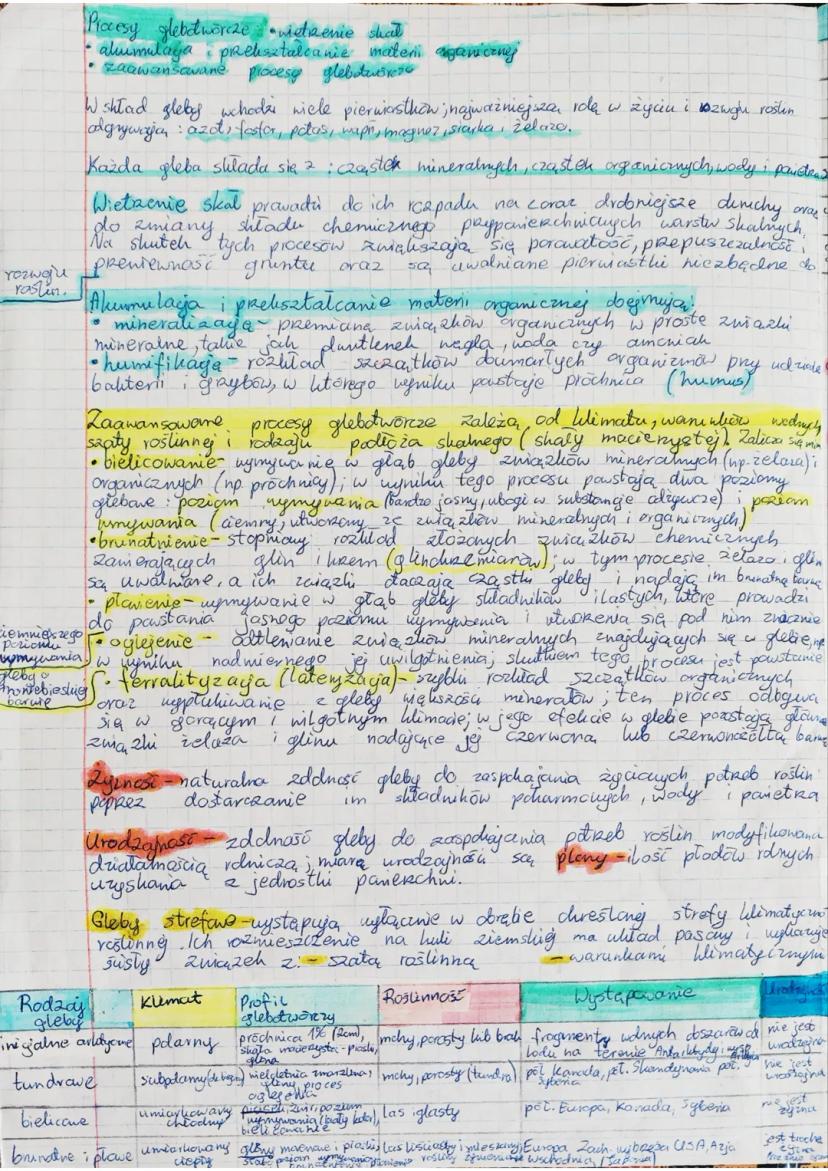 Procesy glebotwórcze: • wietrzenie skał
• akumulacja i przekształcanie materii organicznej
• zaawansowane procesy glebotwórcze
W skład gleby wchodzi wiele pierwiastków; najważniejszą rolę w życiu i rozwoju roślin
odgrywają: azot, fosfor, potas, wapń, magnez, siarka i żelazo.
Każda gleba składa się z: cząstek mineralnych, cząstek organicznych, wody i powietrza
Wietrzenie skał prowadzi do ich rozpadu na coraz drobniejsze okruchy oraz
do zmiany składu chemicznego przypowierzchniowych warstw skalnych.
Na skutek tych procesów zwiększają się porowatość, przepuszczalność i
przewiewność gruntu oraz są uwalniane pierwiastki niezbędne do
rozwoju
roślin.
Akumulacja i przekształcanie materii organicznej obejmują:
• mineralizację - przemianę związków organicznych w proste związki
mineralne, takie jak dwutlenek węgla, woda czy amoniak
• humifikację - rozkład szczątków obumarłych organizmów przy udziale
bakterii i grzybów, w którego wyniku powstaje próchnica (humus)
Zaawansowane procesy glebotwórcze zależą od klimatu, warunków wodnych,
szaty roślinnej i rodzaju podłoża skalnego (skały macierzystej). Zalicza się min
• bielicowanie - wymywanie w głąb gleby związków mineralnych (np. żelaza) i
organicznych (np. próchnicy); w wyniku tego procesu powstają dwa poziomy
glebowe: poziom wymywania (bardzo jasny, ubogi w substancje odżywcze) i poziom
wmywania (ciemny, utworzony ze związków mineralnych i organicznych)
• brunatnienie - stopniowy rozkład złożonych związków chemicznych
zawierających glin i krzem (glinokrzemianów); w tym procesie żelazo i glin
są uwalniane, a ich związki otaczają cząstki gleby i nadają im brunatną barwę
• płowienie - wymywanie w głąb gleby składników ilastych, które prowadzi
do powstania jasnego poziomu wymywania i utworzenia się pod nim znacznie
ciemniejszego
poziomu
wmywania
• oglejenie - odtlenianie związków mineralnych znajdujących się w glebie, np
w wyniku nadmiernego jej uwilgotnienia; skutkiem tego procesu jest powstanie
gleby o
niebieskiej
barwie
• ferralityzacja (lateryzacja) - szybki rozkład szczątków organicznych
oraz wypłukiwanie z gleby większości minerałów; ten proces odbywa
się w gorącym i wilgotnym klimacie; w jego efekcie w glebie pozostają główn
związki żelaza i glinu nadające jej czerwoną lub czerwonożółtą barwę
Żyzność - naturalna zdolność gleby do zaspokajania życiowych potrzeb roślin
poprzez dostarczanie im składników pokarmowych, wody i powietrza
Urodzajność - zdolność gleby do zaspokajania potrzeb roślin modyfikowana
działalnością rolniczą; miarą urodzajności są plony - ilość płodów rolnych
uzyskana z jednostki powierzchni.
Gleby strefowe - występują wyłącznie w obrębie określonej strefy klimatyczno
roślinnej. Ich rozmieszczenie na kuli ziemskiej ma układ pasowy i wykazuje
ścisły związek z: - szatą roślinną - warunkami klimatycznymi
Rodzaj gleby Klimat Profil glebotwórczy Roślinność Występowanie Urodzajność
inicjalne arktyczne polarny próchnica 1% (2cm), skała macierzysta - piaski, glina mchy, porosty lub brak fragmenty wolnych obszarów od lodu na terenie Antarktydy i wysp nie jest urodzajna
tundrowe subpolarny wieloletnia zmarzlina, gliny, proces oglejenia mchy, porosty (tundra) płn. Kanada, płn. Skandynawia płn. Syberia nie jest urodzajna
bielicowe umiarkowany chłodny piaski, żwir, poziom wymywania (biały kolor), bielicowanie las iglasty płn. Europa, Kanada, Syberia nie jest żyzna
brunatne i płowe umiarkowany ciepły gliny morenowe i piaski, las liściasty i mieszany, Europa Zach, wybrzeża USA, Azja wschodnia jest trochę żyzna